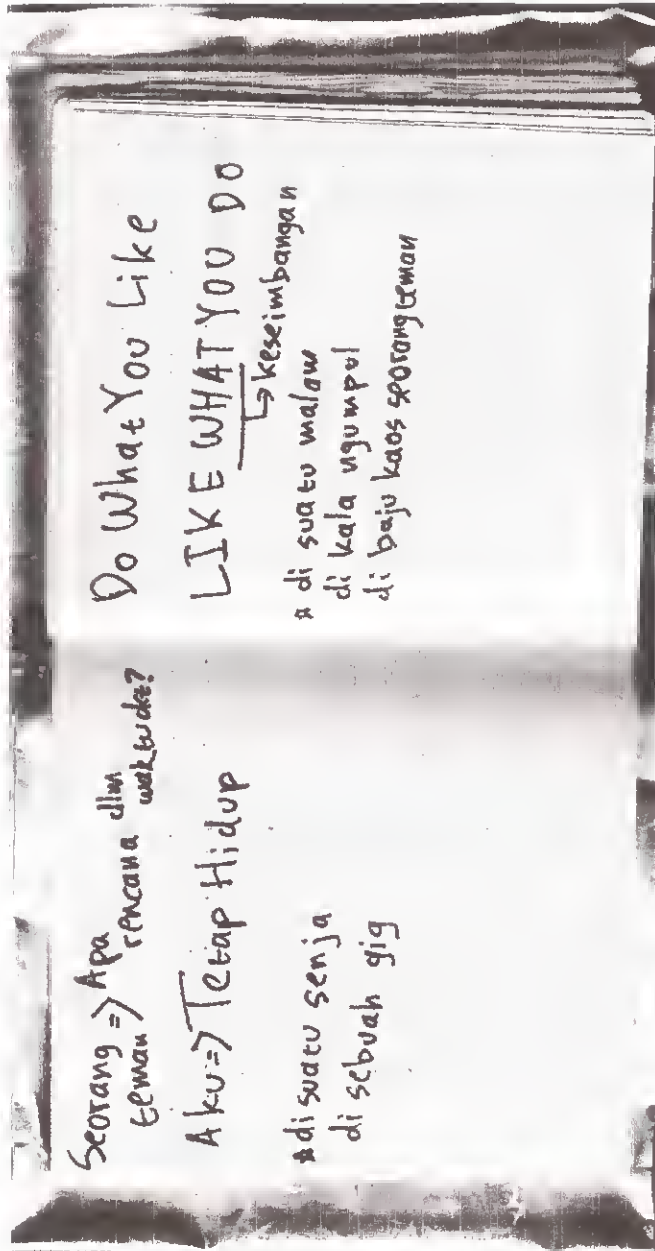 Seorang => Apa
teman rencana dlm
waktu dkt?
Aku => Tetap Hidup
* di suatu senja
di sebuah gig
Do What You Like
LIKE WHAT YOU DO
↳ keseimbangan
* di suatu malam
di kala ngumpul
di baju kaos seorang teman